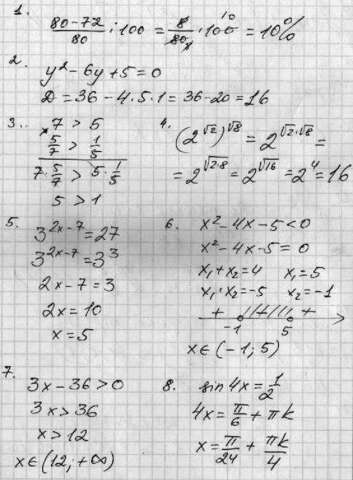 1.
(80-72)/80 · 100 = 8/80 · 100 = 10%
2.
y² - 6y + 5 = 0
D = 36 - 4·5·1 = 36 - 20 = 16
3.
× 7 > 5
5/7 > 1/5
7·5/7 > 5·1/5
5 > 1
4.
(2^√2)^√8 = 2^(√2·√8) =
= 2^√(2·8) = 2^√16 = 2⁴ = 16
5.
3^(2x-7) = 27
3^(2x-7) = 3³
2x - 7 = 3
2x = 10
x = 5
6.
x² - 4x - 5 < 0
x² - 4x - 5 = 0
x₁ + x₂ = 4 x₁ = 5
x₁ · x₂ = -5 x₂ = -1
+ - +
-1 5
x ∈ (-1; 5)
7.
3x - 36 > 0
3x > 36
x > 12
x ∈ (12; +∞)
8.
sin 4x = 1/2
4x = π/6 + πk
x = π/24 + πk/4